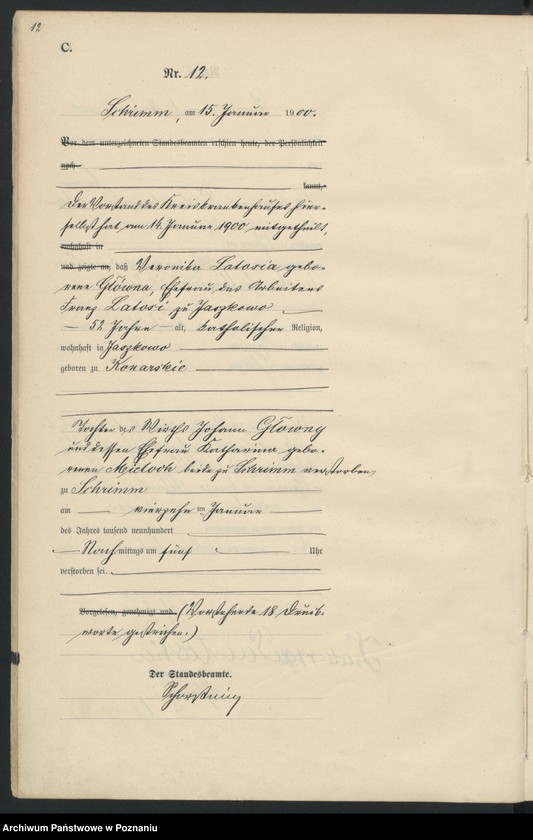 12
C.
Nr. 12.
Schrimm, am 15. Januar 1900.
Vor dem unterzeichneten Standesbeamten erschien heute, der Persönlichkeit
nach
kannt,
Der Vorstand des Kreiskrankenhauses hier-
selbst hat am 14. Januar 1900 mitgetheilt,
wohnhaft in
und zeigte an, daß Veronika Latosia gebo-
rene Główna, Ehefrau des Arbeiters
Franz Latosi zu Jaszkowo
52 Jahre alt, katholischer Religion,
wohnhaft in Jaszkowo
geboren zu Konarskie
Tochter des Wirths Johann Główny
und dessen Ehefrau Katharina gebo-
renen Mietoch beide zu Schrimm verstorben,
zu Schrimm
am vierzehn ten Januar
des Jahres tausend neunhundert
Nach mittags um fünf Uhr
verstorben sei.
Vorgelesen, genehmigt und (Vorstehende 18 Druck-
worte gestrichen.)
Der Standesbeamte.
Archiwum Państwowe w Poznaniu